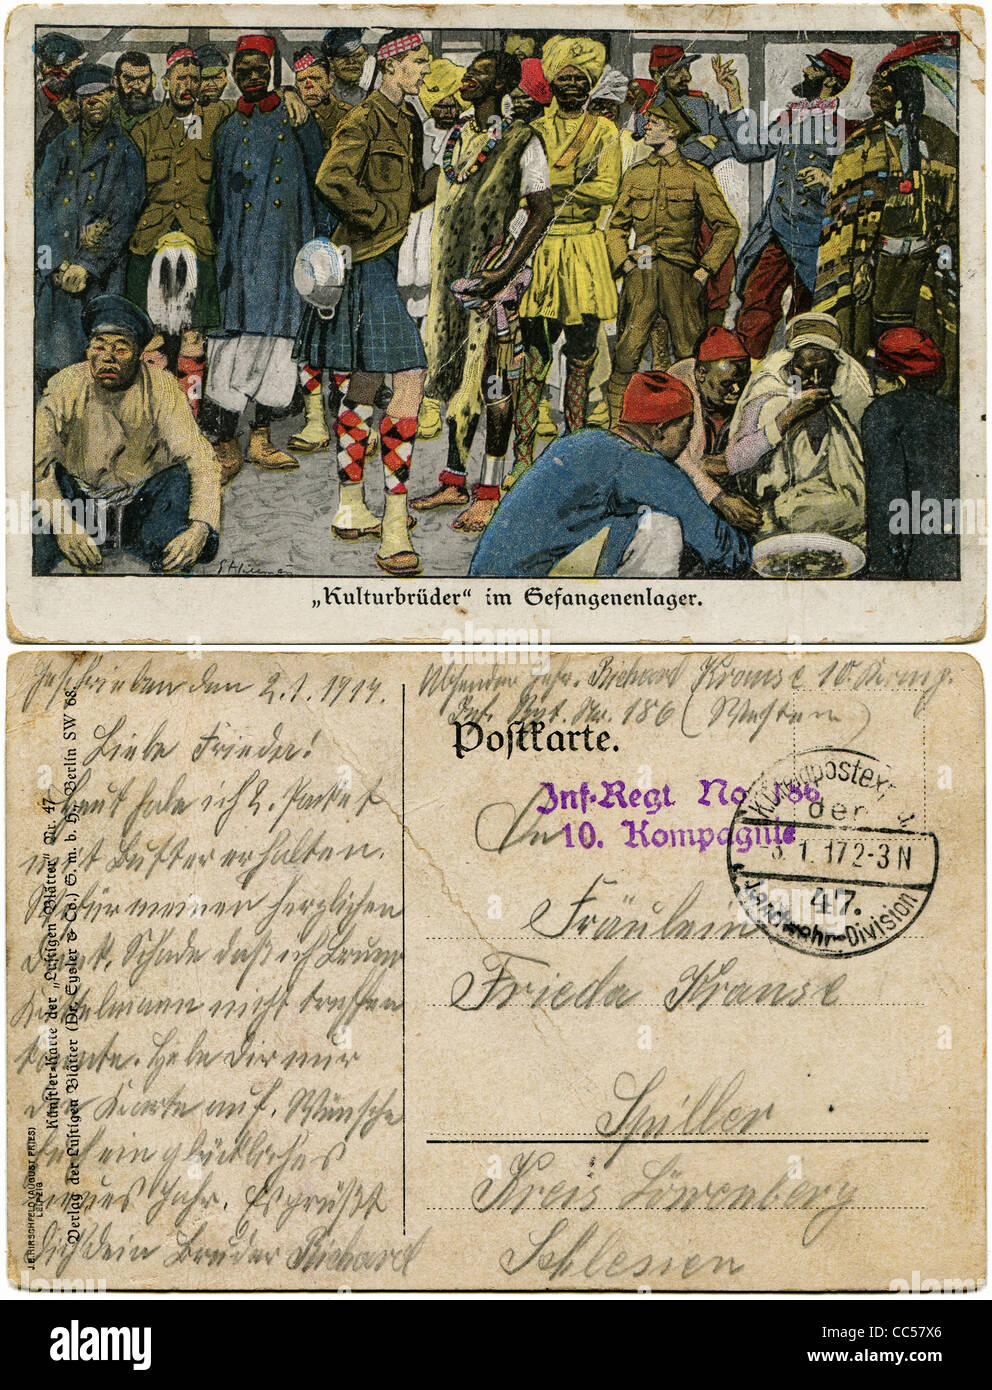 „Kulturbrüder“ im Gefangenenlager.
Geschrieben den 2.1.1917.
Liebe Frieda!
Heut habe ich 2. Paket
mit Butter erhalten.
Dafür meinen herzlichen
Dank. Schade daß ich Bruno
nicht treffen
konnte. Hebe Dir nur
die Karte auf. Wünsche
Euch ein glückliches
neues Jahr. Es grüßt
Dich Dein Bruder Richard
Künstler-Karte der „Lustigen Blätter“ Nr. 47
Verlag der Lustigen Blätter (Dr. Eysler & Co.) G. m. b. H., Berlin SW 68.
J.B. HIRSCHFELD (AUGUST PRIES)
LEIPZIG
Absender Gefr. Richard Krause 10. Komp.
Inf. Rgt. Nr. 186 (Westen)
Postkarte.
Inf.-Regt No 186
10. Kompagnie
An
K.D. Feldpostexp.
der
-3.1.17 2-3 N
47.
Landwehr-Division
Fräulein
Frieda Krause
Spiller
Kreis Löwenberg
Schlesien
alamy
Image ID: CC57X6
www.alamy.com